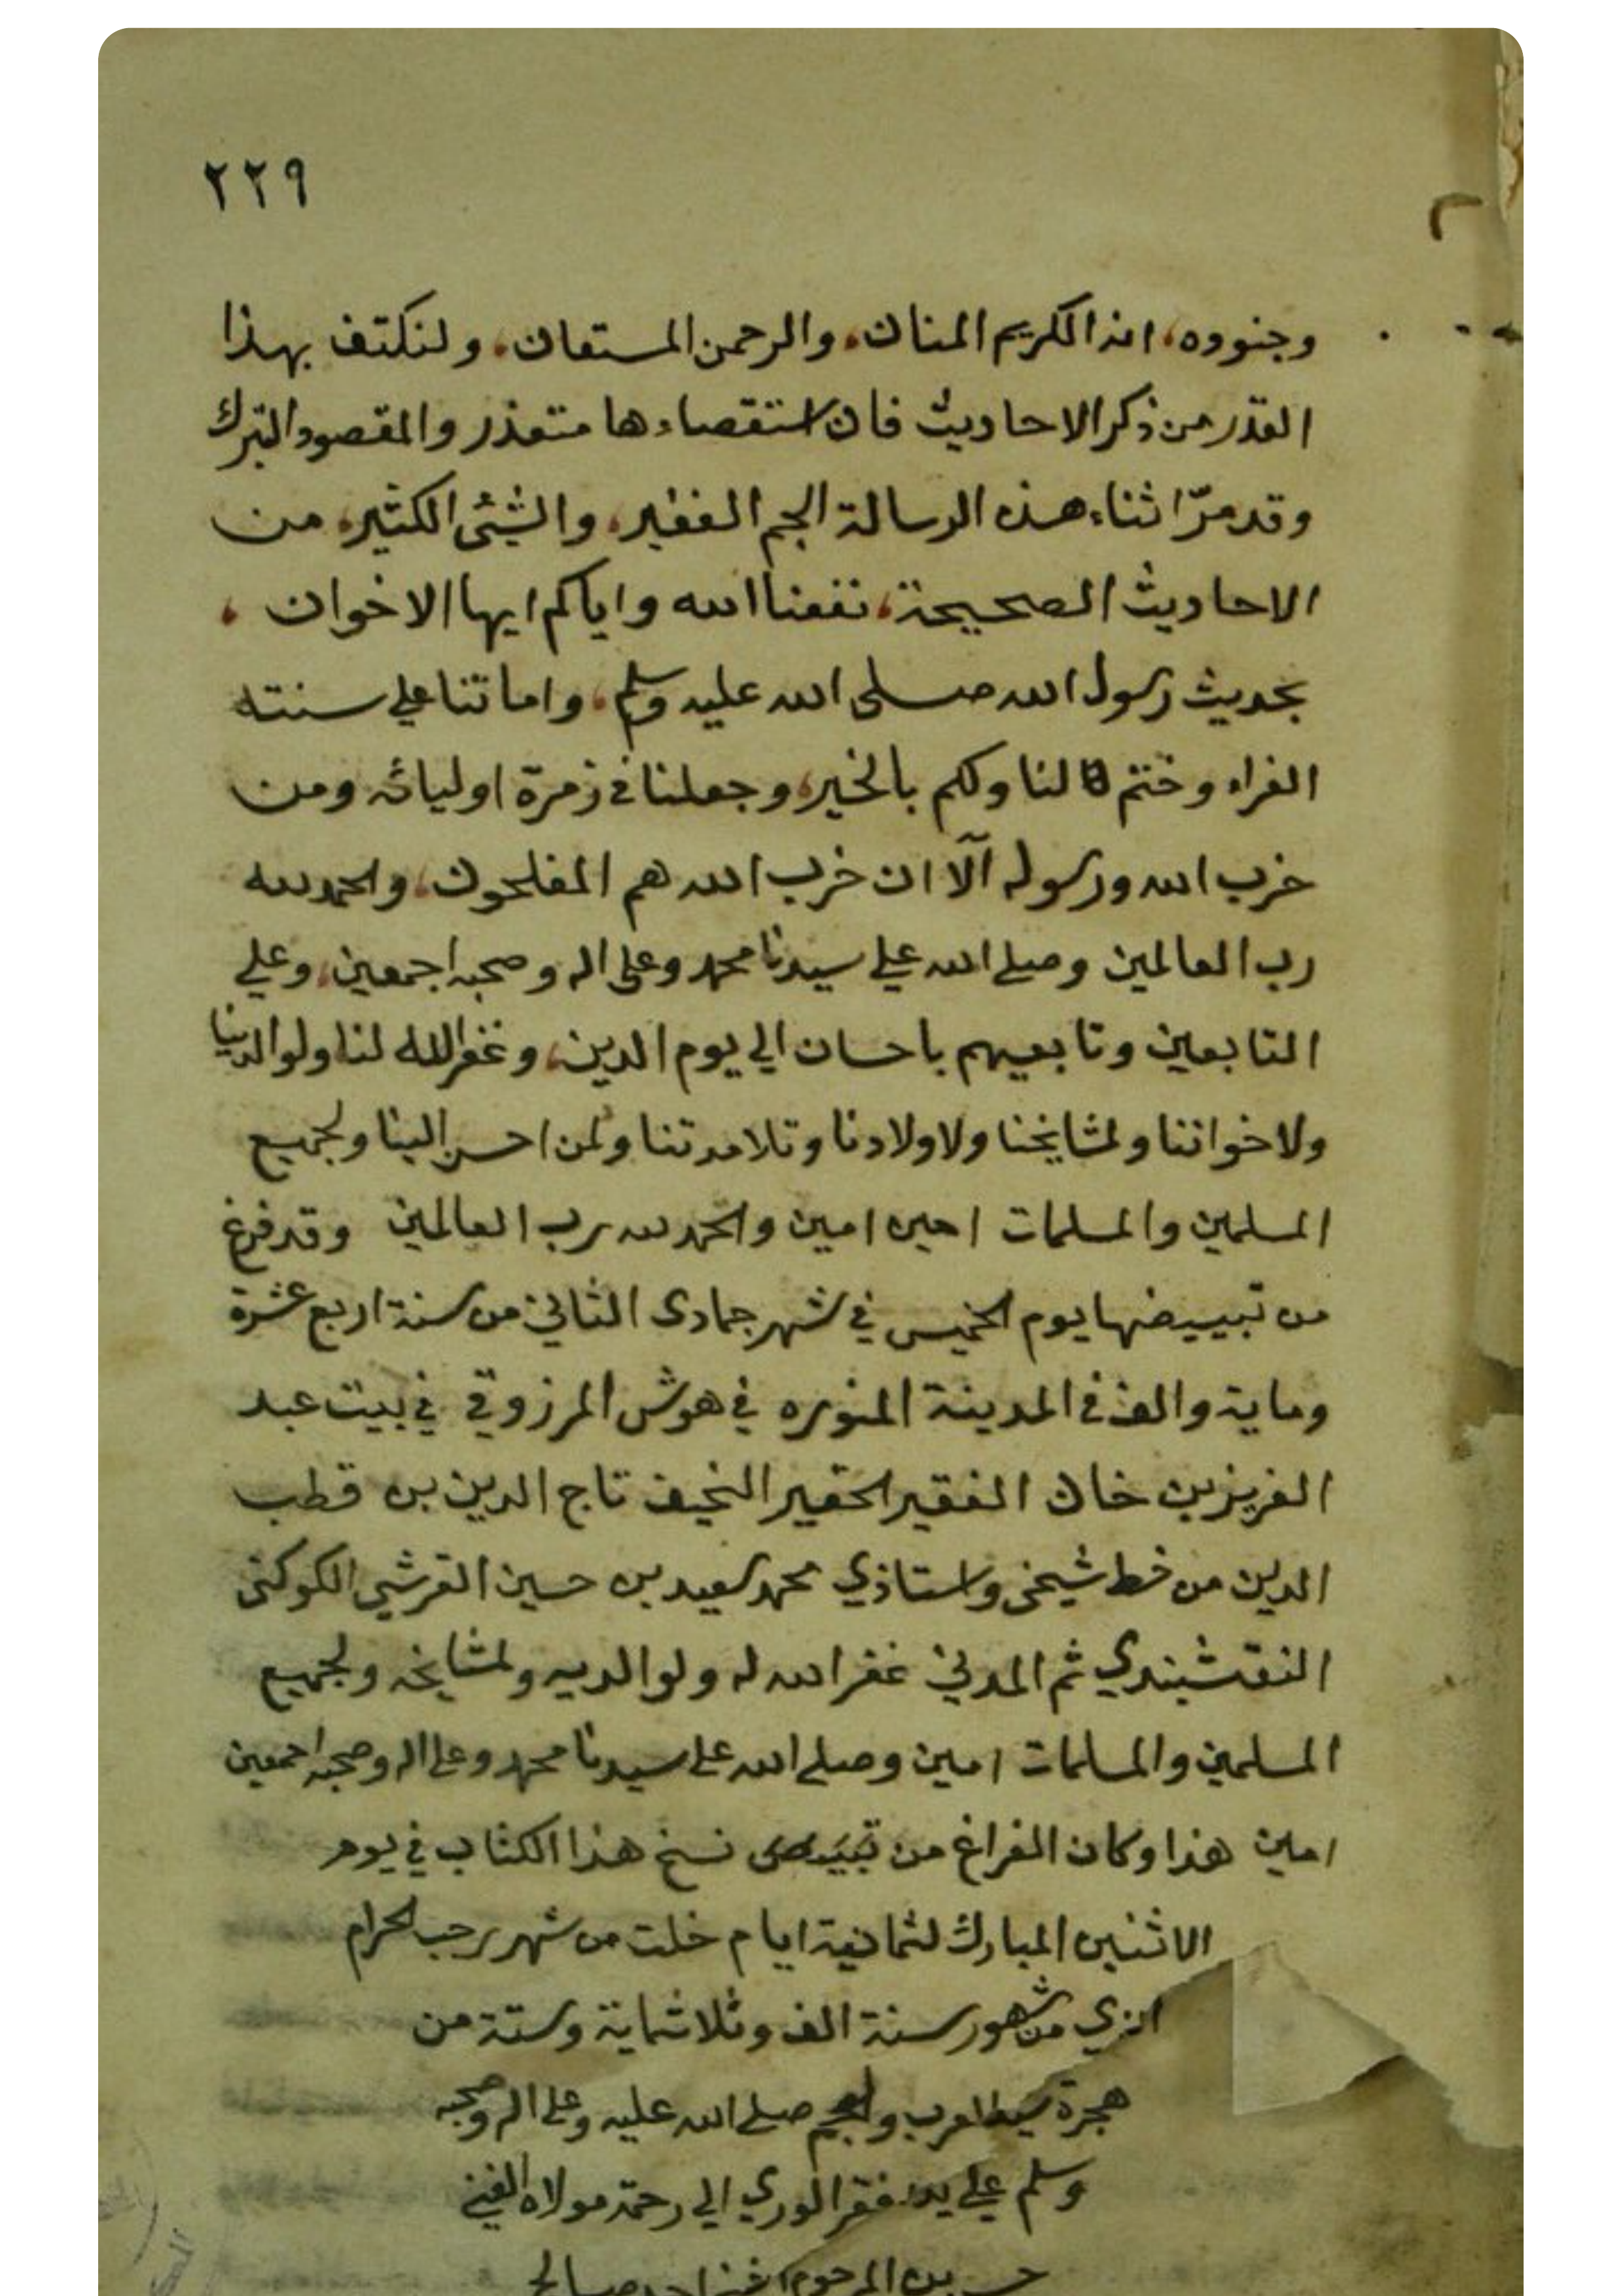 ٢٢٩
وجنوده، انه الكريم المنان، والرحمن المستعان، ولنكتف بهذا
القدر من ذكر الاحاديث فان استقصاءها متعذر والمقصود التبرك
وقد مرّ اثناء هذه الرسالة الجم الغفير، والشئ الكثير، من
الاحاديث الصحيحة، نفعنا الله واياكم ايها الاخوان ،
بحديث رسول الله صلى الله عليه وسلم، واماتنا على سنته
الغراء وختم لنا ولكم بالخير، وجعلنا في زمرة اوليائه ومن
حزب الله ورسوله آلا ان حزب الله هم المفلحون، والحمد لله
رب العالمين وصلى الله على سيدنا محمد وعلى اله وصحبه اجمعين، وعلي
التابعين وتابعيهم باحسان الي يوم الدين، وغفر الله لنا ولوالدينا
ولاخواننا ولمشايخنا ولاولادنا وتلامدتنا ولمن احسن الينا ولجميع
المسلمين والمسلمات امين امين والحمد لله رب العالمين وقد فرغ
من تبييضها يوم الخميس في شهر جمادى الثاني من سنة اربع عشرة
وماية والف في المدينة المنوره في هوش المرزوقي في بيت عبد
العزيز بن خان الفقير الحقير النحيف تاج الدين بن قطب
الدين من خط شيخى واستاذي محمد سعيد بن حسين القرشي الكوكنى
النقشبندي ثم المدني غفر الله له ولوالديه ولمشايخه ولجميع
المسلمين والمسلمات امين وصلى الله على سيدنا محمد وعلى اله وصحبه اجمعين
امين هذا وكان الفراغ من تبييض نسخ هذا الكتاب في يوم
الاثنين المبارك لثمانية ايام خلت من شهر رجب الحرام
الذي من شهور سنة الف وثلاثماية وستة من
هجرة سيد العرب والعجم صلى الله عليه وعلى اله وصحبه
وسلم علي يد افقر الوري الي رحمة مولاه الغني
بن المرحوم صالح